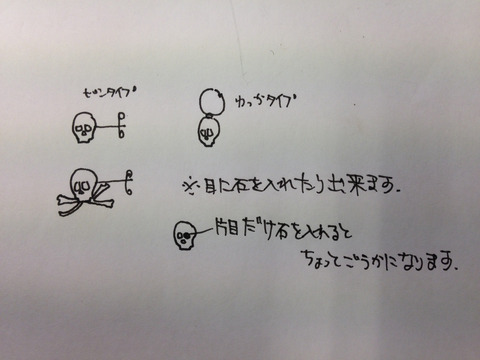 ピンタイプ
わっかタイプ
※目に石を入れたり出来ます.
片目だけ石を入れると
ちょっとごうかになります.